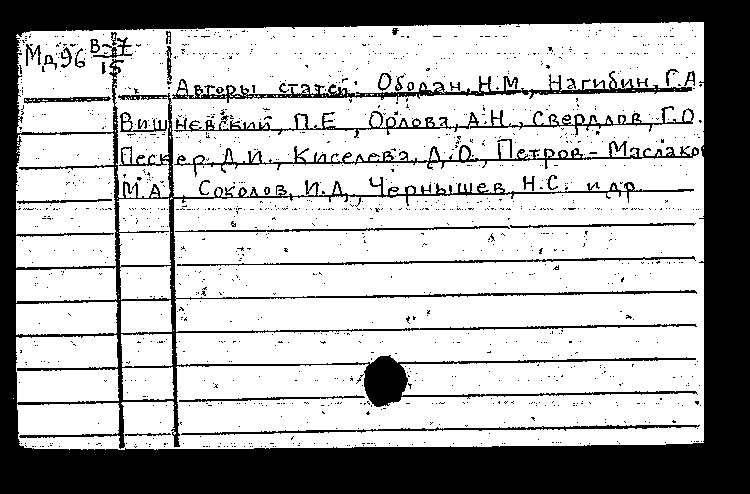 Мд96 В-7
15
Авторы статей: Ободан, Н.М., Нагибин, Г.А.
Вишневский, П.Е., Орлова, А.Н., Свердлов, Г.О.
Пескер, Д.И., Киселева, Д.О., Петров-Маслаков
М.А., Соколов, И.Д., Чернышев, Н.С. и др.